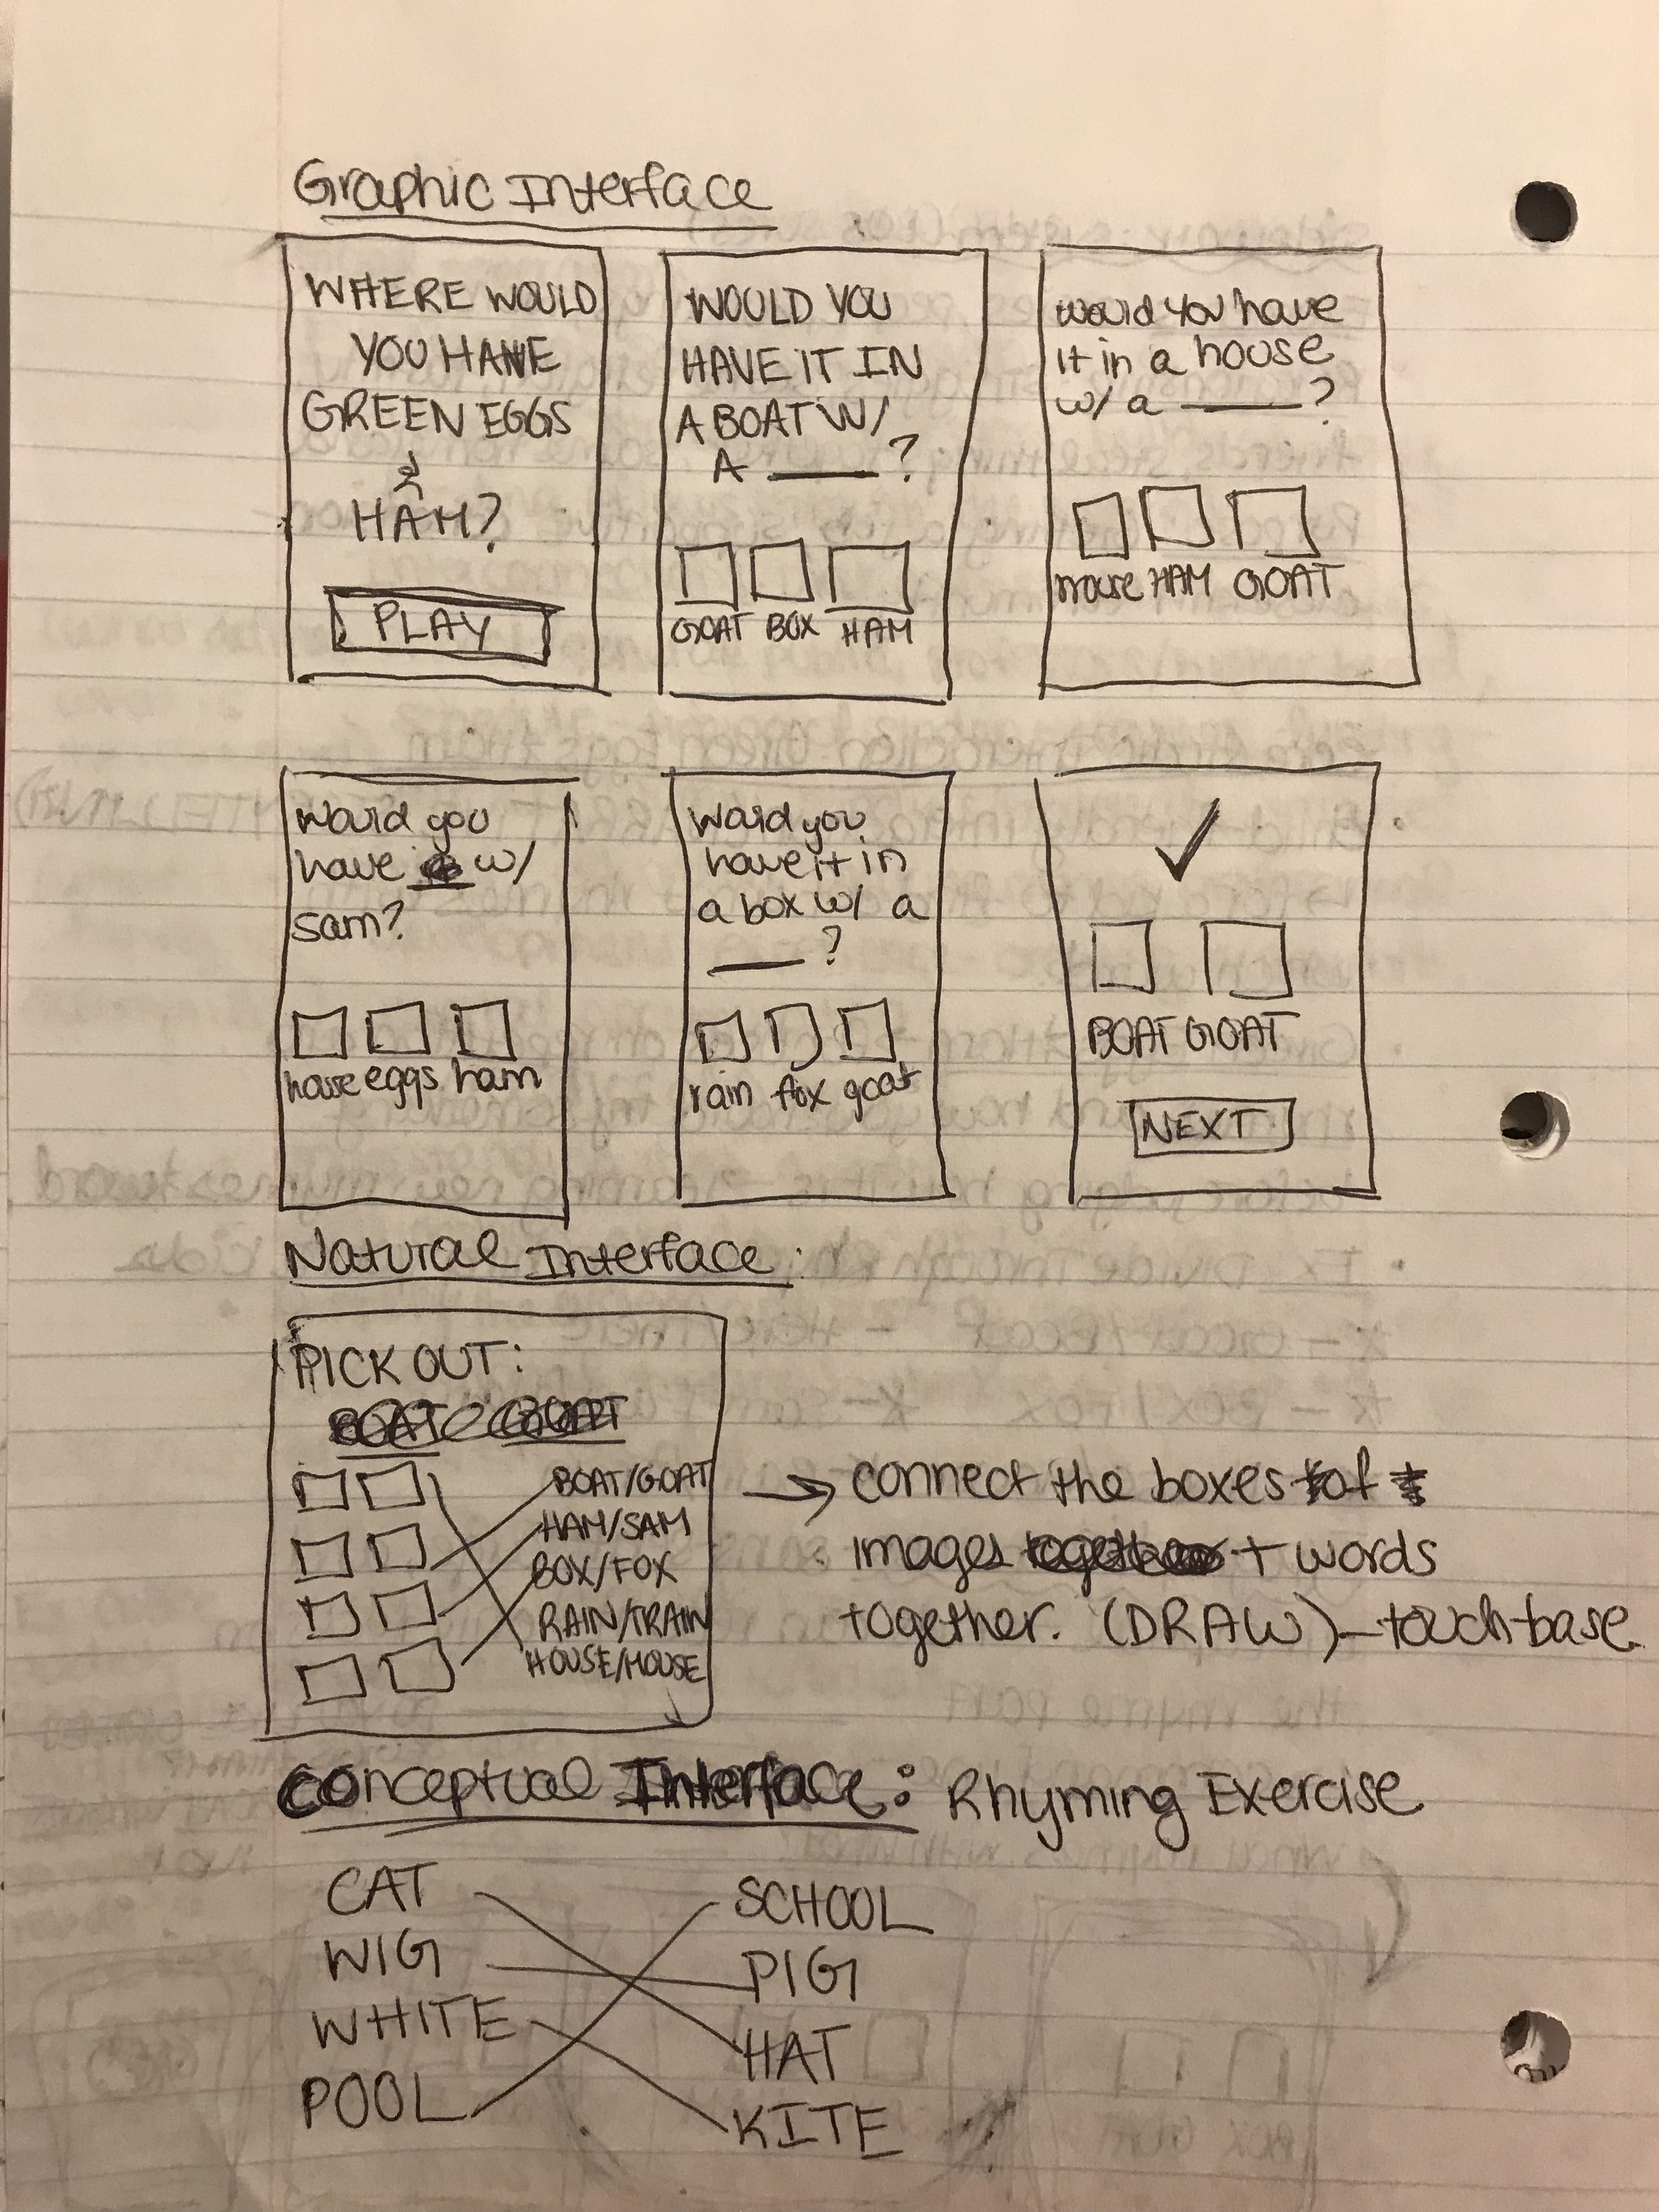 Graphic Interface
WHERE WOULD
YOU HAVE
GREEN EGGS
&
HAM?
PLAY
WOULD YOU
HAVE IT IN
A BOAT W/
A ____ ?
GOAT BOX HAM
Would you have
it in a house
w/ a ____ ?
mouse HAM GOAT
Would you
have w/
sam?
house eggs ham
Would you
have it in
a box w/ a
____ ?
rain fox goat
✓
BOAT GOAT
NEXT
Natural Interface:
PICK OUT:
BOAT GOAT
BOAT/GOAT
HAM/SAM
BOX/FOX
RAIN/TRAIN
HOUSE/MOUSE
→ connect the boxes of
images + words
together. (DRAW) - touch-base
Conceptual Interface: Rhyming Exercise
CAT
WIG
WHITE
POOL
SCHOOL
PIG
HAT
KITE